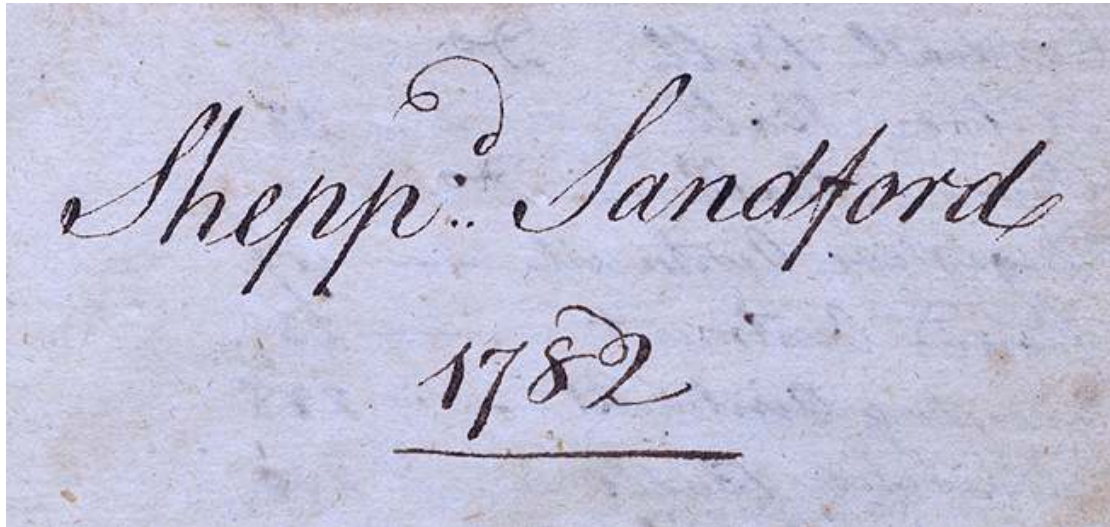 Shepp^d. Sandford
1782